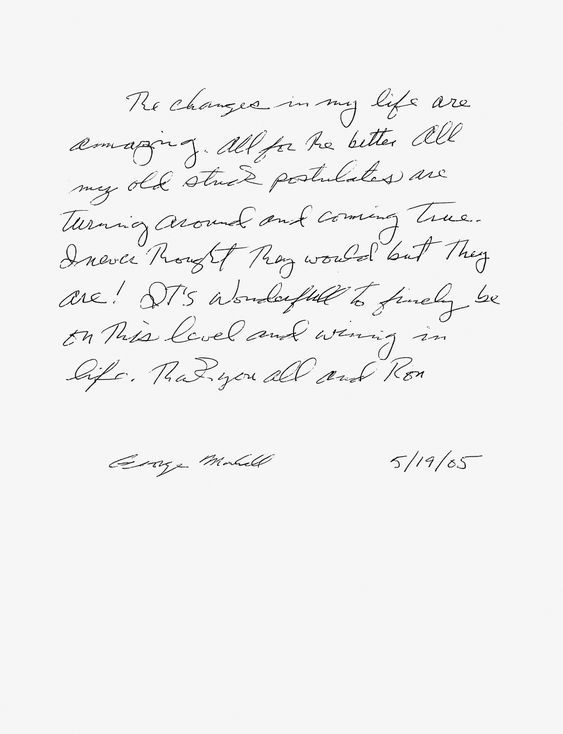 The changes in my life are
amazing. All for the better All
my old stuck postulates are
Turning around and coming True.
I never Thought They would but They
are! IT's Wonderfull to finely be
on This level and wining in
life. Thank you all and Ron
George
5/19/05